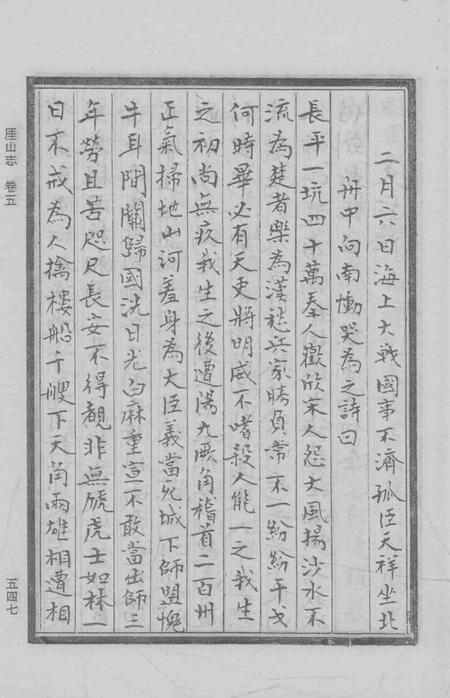 二月六日海上大戰國事不濟孤臣天祥坐北
舟中向南慟哭為之詩曰
長平一坑四十萬秦人歡欣宋人怨大風揚沙水不
流為楚者樂為漢愁江家勝負常不一紛紛干戈
何時畢必有天吏將明威不嗜殺人能一之我生
之初尚無疚我生之後遭陽九厥角稽首二百州
正氣掃地山河羞身為大臣義當死城下師盟愧
牛耳間關歸國洗日光白麻重宣不敢當出師三
年勞且苦咫尺長安不得覩非無虓虎士如林一
日不戒為人擒樓船千艘下天角兩雄相遭相
厓山志 卷五
五四七